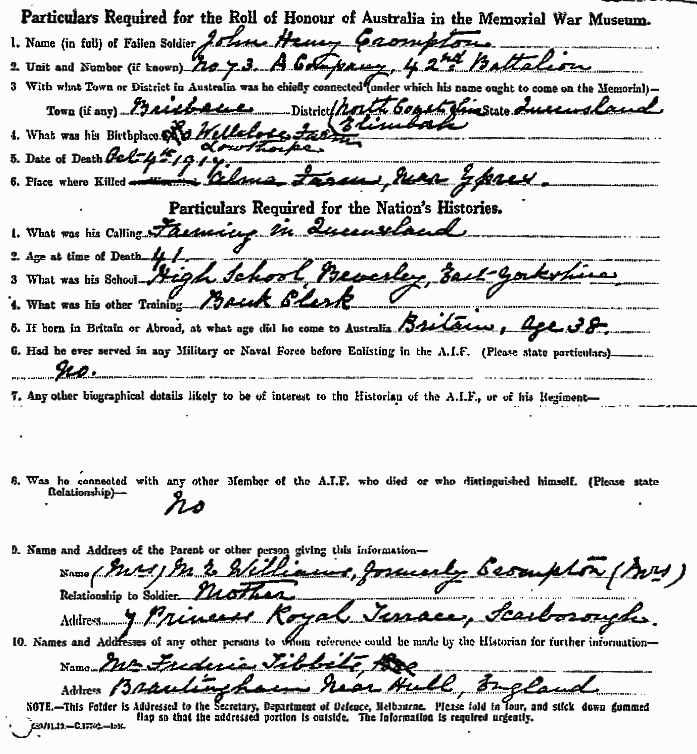 Particulars Required for the Roll of Honour of Australia in the Memorial War Museum.
1. Name (in full) of Fallen Soldier John Henry Crompton
2. Unit and Number (if known) No 73. A Company, 42nd Battalion
3 With what Town or District in Australia was he chiefly connected (under which his name ought to come on the Memorial)—
Town (if any) Brisbane District (North Coast Line State Queensland
Elimbah
4. What was his Birthplace Wellclose Farm
Lowthorpe
5. Date of Death Oct 4th 1917.
6. Place where Killed Alma Farm, near Ypres.
Particulars Required for the Nation's Histories.
1. What was his Calling Farming in Queensland
2. Age at time of Death 41
3 What was his School High School, Beverley, East-Yorkshire
4. What was his other Training Bank Clerk
5. If born in Britain or Abroad, at what age did he come to Australia Britain, age 38.
6. Had he ever served in any Military or Naval Force before Enlisting in the A.I.F. (Please state particulars)
No.
7. Any other biographical details likely to be of interest to the Historian of the A.I.F., or of his Regiment—
8. Was he connected with any other Member of the A.I.F. who died or who distinguished himself. (Please state
Relationship)—
No
9. Name and Address of the Parent or other person giving this information—
Name (Mrs) M E Williams, formerly Crompton (Mrs)
Relationship to Soldier Mother
Address 7 Princess Royal Terrace, Scarborough.
10. Names and Addresses of any other persons to whom reference could be made by the Historian for further information—
Name Mr Frederic Tibbits,
Address Brantingham near Hull, England
NOTE.—This Folder is Addressed to the Secretary, Department of Defence, Melbourne. Please fold in four, and stick down gummed
flap so that the addressed portion is outside. The information is required urgently.